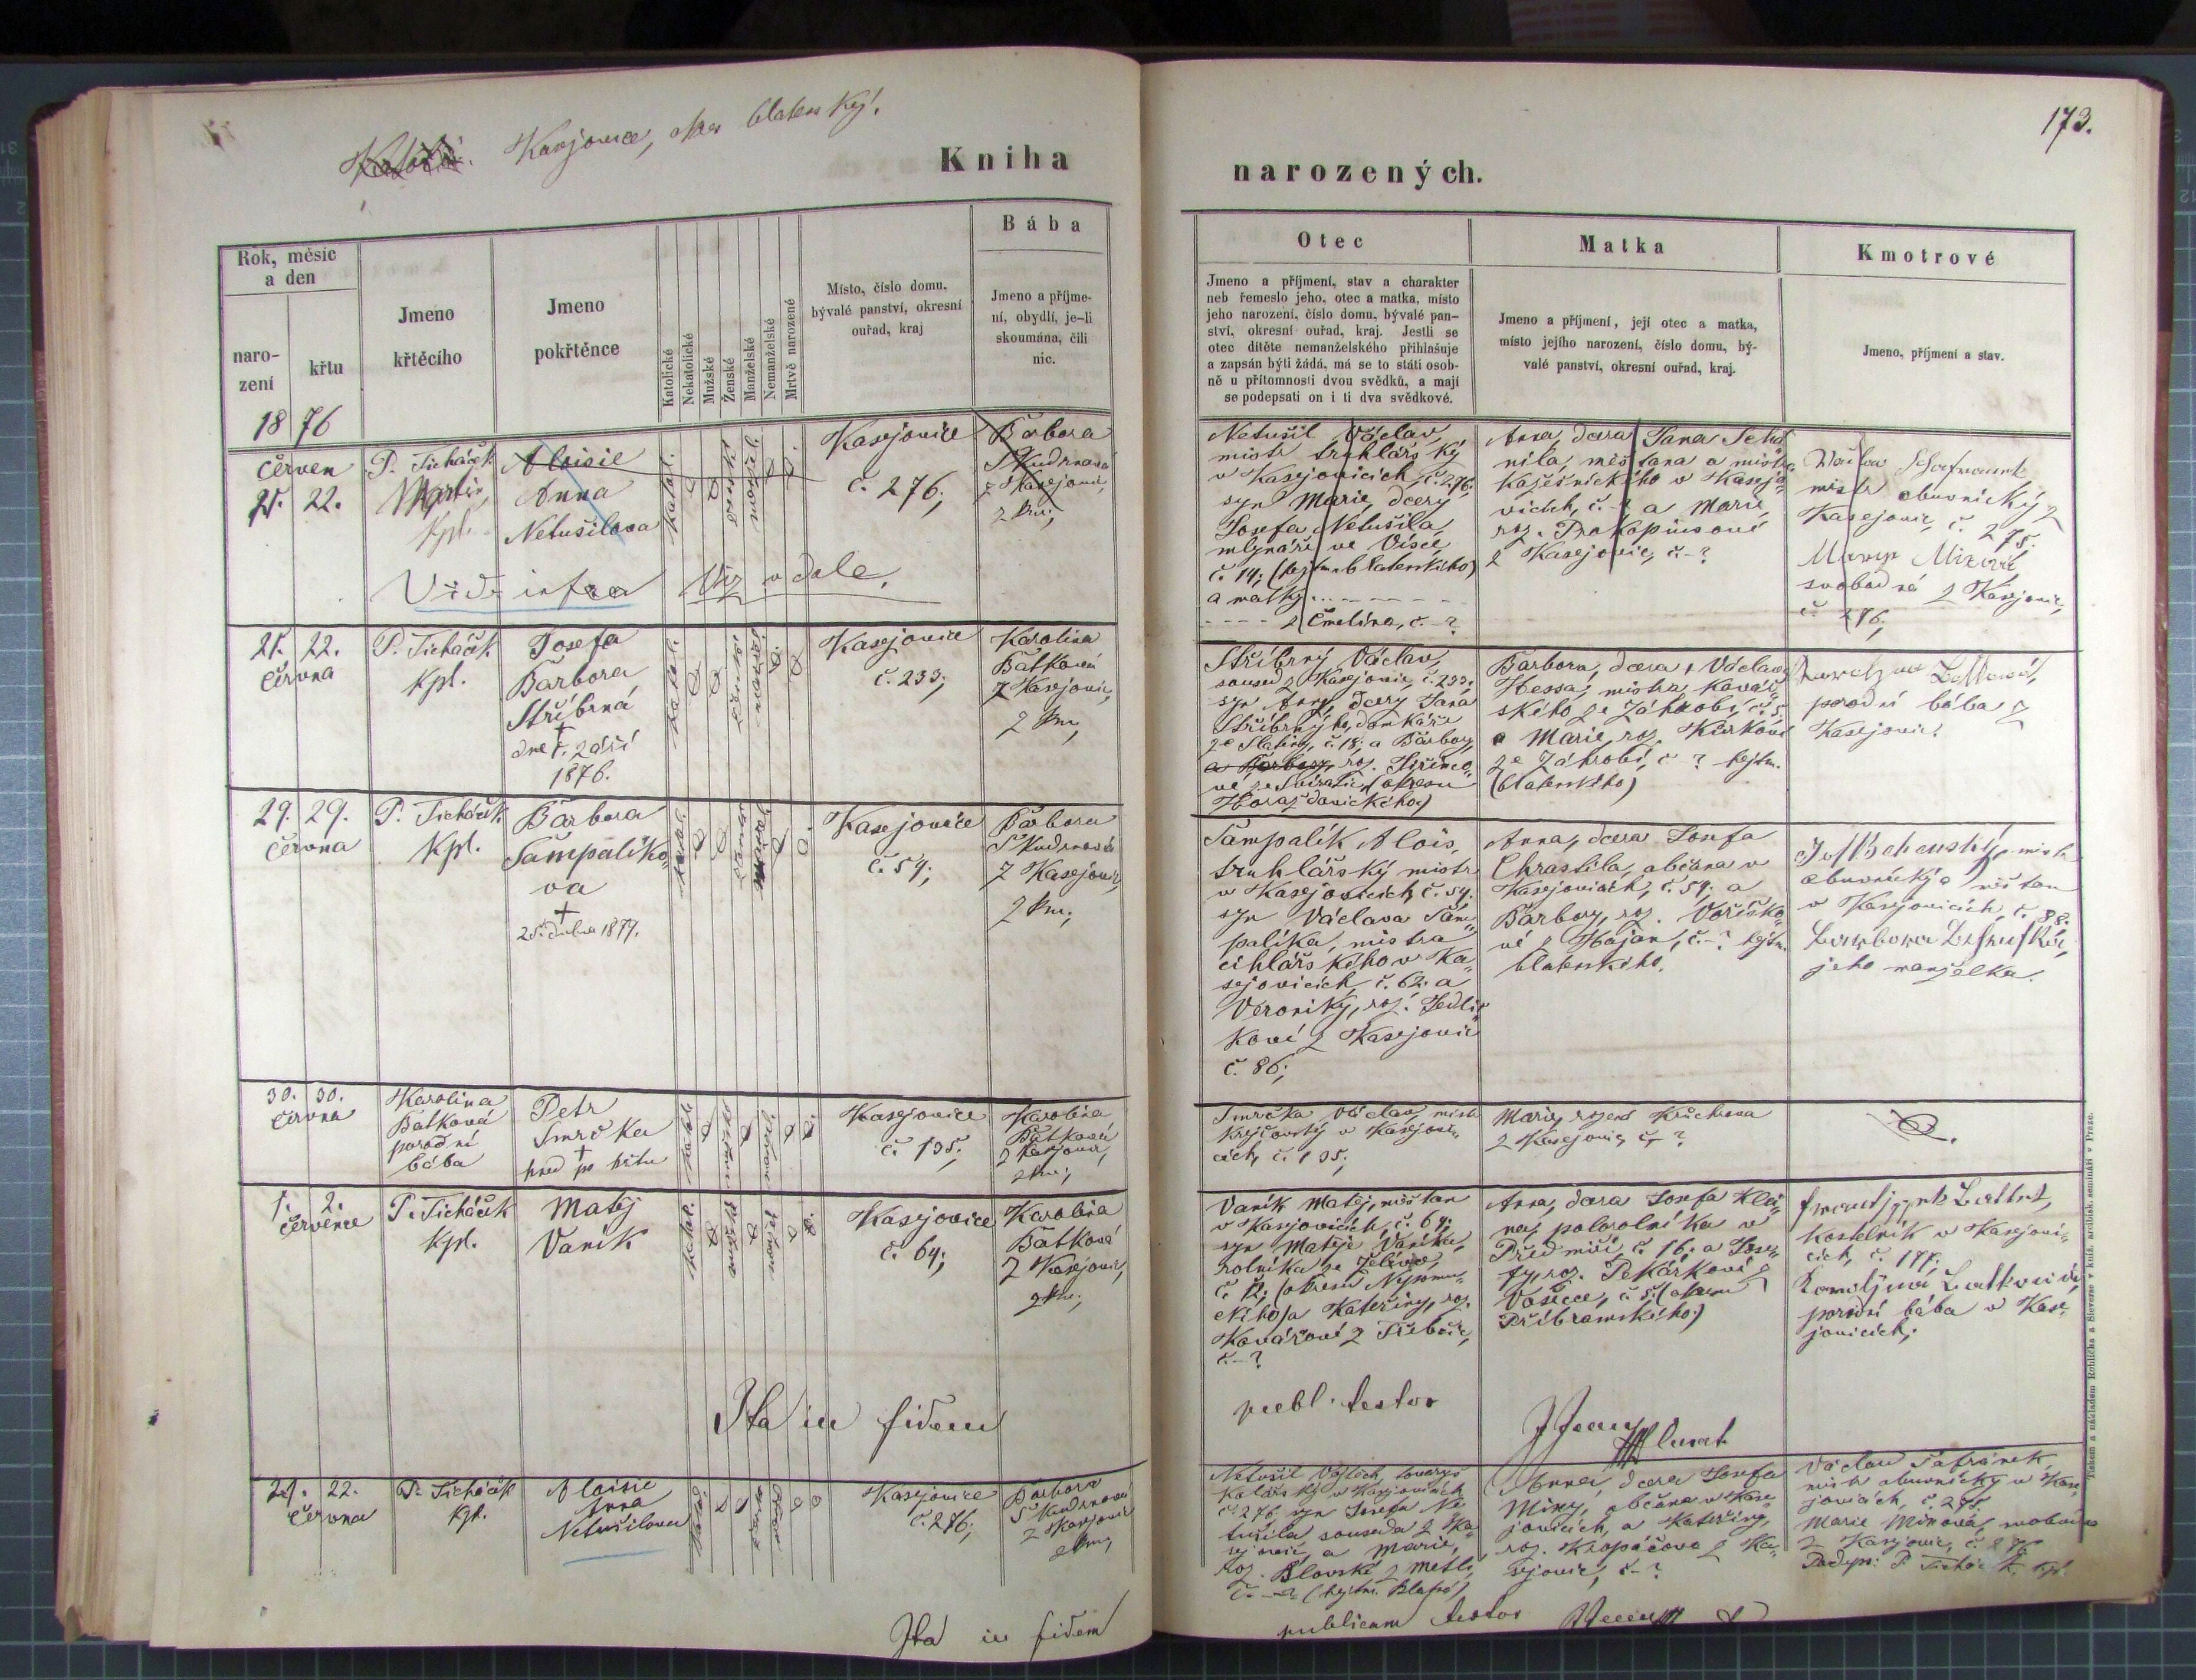 Kasejovice, okres blatenský.
173.
Kniha
narozených.
Rok, měsíc
a den
naro-
zení
křtu
Jmeno
křtěcího
Jmeno
pokřtěnce
Katolické
Nekatolické
Mužské
Ženské
Manželské
Nemanželské
Mrtvě narozené
Místo, číslo domu,
bývalé panství, okresní
ouřad, kraj
Bába
Jmeno a příjme-
ní, obydlí, je-li
skoumána, čili
nic.
Otec
Jmeno a příjmení, stav a charakter
neb řemeslo jeho, otec a matka, místo
jeho narození, číslo domu, bývalé pan-
ství, okresní ouřad, kraj. Jestli se
otec dítěte nemanželského přihlašuje
a zapsán býti žádá, má se to státi osob-
ně u přítomnosti dvou svědků, a mají
se podepsati on i ti dva svědkové.
Matka
Jmeno a příjmení, její otec a matka,
místo jejího narození, číslo domu, bý-
valé panství, okresní ouřad, kraj.
Kmotrové
Jmeno, příjmení a stav.
1876
červen
21. 22.
P. Ticháček
kpl.
Aloisie
Anna
Netušilova
Vide infra
Viz dole.
Kasejovice
č. 276;
Barbora
Škudrnová
z Kasejovic,
zkou;
Netušil Václav,
mistr truhlářský
v Kasejovicích, č. 276;
syn Marie, dcery
Josefa Netušila,
mlynáře ve Vísce,
č. 14; (hejtm. blatenského)
a matky
z Čmelína, č. -?
Anna, dcera Jana
níla, mistra
v Kasejo-
vicích, č. -? a Marie,
roz. Prokopiusové
z Kasejovic, č. -?
mistr obuvnický z
Kasejovic, č. 275.
svobodná z Kasejovic,
č. 276;
21. 22.
června
P. Ticháček
kpl.
Josefa
Barbora
Stříbrná
†
dne 1. září
1876.
Kasejovice
č. 233;
Karolina
Batková
z Kasejovic,
zkou;
Stříbrný Václav,
soused z Kasejovic, č. 233;
syn Anny, dcery Jana
Stříbrnýho, domkáře
ze Slatiny, č. 18; a Barbory,
a Barbory, roz.
(okresu
Horažďovického)
Barbora, dcera Václava
Hessa, mistra kovář-
ského ze Záhrobí, č. 5.
a Marie, roz. Kurkové
ze Záhrobí, č. -? hejtm.
(blatenského)
porodní bába z
Kasejovic.
29. 29.
června
P. Ticháček
kpl.
Barbora
Šampaliko-
va
†
25. dubna 1877.
Kasejovice
č. 59;
Barbora
Škudrnová
z Kasejovic,
zkou;
Šampalík Alois,
truhlářský mistr
v Kasejovicích, č. 59;
syn Václava Šam-
palíka, mistra
cihlářského v Ka-
sejovicích, č. 62. a
Veroniky, roz. Jedlič-
kové z Kasejovic
č. 86;
Anna, dcera Josefa
Chrastila, občana v
Kasejovicích, č. 59; a
Barbory, roz. Voříško-
vé z Hajan, č. -? hejtm.
blatenského.
obuvnický a měšťan
v Kasejovicích, č. 88.
jeho manželka.
30. 30.
června
Karolina
Batková
porodní
bába
Petr
Smrčka
†
hned po křtu
Kasejovice
č. 135;
Karolina
Batková
z Kasejovic,
zkou;
Smrčka Václav, mistr
krejčovský v Kasejovi-
cích, č. 135;
Marie, rozená Kůchova
z Kasejovic, č. -?
1. 2.
července
P. Ticháček
kpl.
Matěj
Vaník
Kasejovice
č. 69;
Karolina
Batková
z Kasejovic,
zkou;
Vaník Matěj, měšťan
v Kasejovicích, č. 69;
syn Matěje Vaníka,
rolníka ze Želvic,
č. 12; (okresu Nepomu-
ckého) a Kateřiny, roz.
Kovářové z Třebčic,
č. -?
Anna, dcera Josefa Klei-
na, polorolníka v
Předmíři, č. 16. a Jose-
fy, roz. Pekárkové z
Vošelce, č. 5; (okresu
Příbramského)
kostelník v Kasejovi-
cích, č. 177;
porodní bába v Kase-
jovicích;
Ita in fidem
publ. testor
21. 22.
června
P. Ticháček
kpl.
Aloisie
Anna
Netušilova
Kasejovice
č. 276;
Barbora
Škudrnová
z Kasejovic
zkou;
Netušil Vojtěch, tovaryš
kolářský v Kasejovicích
č. 276. syn Josefa Ne-
tušila, souseda z Ka-
sejovic, a Marie,
roz. Blovské z Metli,
č. -? (hejtm. Blatné)
Anna, dcera Josefa
Míny, občana v Kase-
jovicích, a Kateřiny,
roz. Kropáčova z Ka-
sejovic, č. -?
Václav Šafránek,
mistr obuvnický v Kase-
jovicích, č. 275.
Marie Mínová, svobodná
z Kasejovic, č. 276.
Podeps: P. Ticháček kpl.
Ita in fidem
publicam testor
Tiskem a nákladem Rohlíčka a Sieverse v kníž. arcibisk. semináři v Praze.